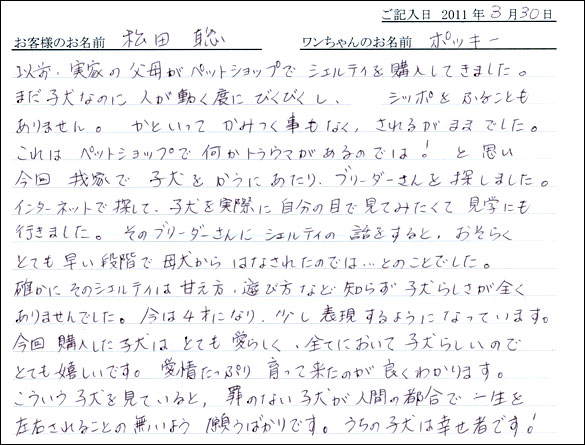 ご記入日 2011 年 3 月 30 日
お客様のお名前 松田 聡 ワンちゃんのお名前 ポッキー
以前、実家の父母がペットショップで シェルティを購入してきました。
まだ子犬なのに 人が動く度に びくびくし、 シッポを ふることも
ありません。 かといって かみつく事もなく、されるがままでした。
これは ペットショップで 何かトラウマがあるのでは! と 思い
今回 我家で 子犬をかうにあたり、ブリーダーさんを探しました。
インターネットで探して、子犬を実際に自分の目で見てみたくて 見学にも
行きました。 そのブリーダーさんに シェルティの 話をすると、おそらく
とても早い段階で 母犬から はなされたのでは…とのことでした。
確かに そのシェルティは 甘え方、遊び方など 知らず 子犬らしさが全く
ありませんでした。 今は4才になり、少し 表現するようになっています。
今回 購入した子犬は とても 愛らしく、全てにおいて 子犬らしいので
とても嬉しいです。 愛情たっぷり 育って来たのが 良くわかります。
こういう 子犬を見ていると、罪のない 子犬が 人間の都合で 一生を
左右されることの無いよう 願うばかりです。 うちの子犬は 幸せ者です!